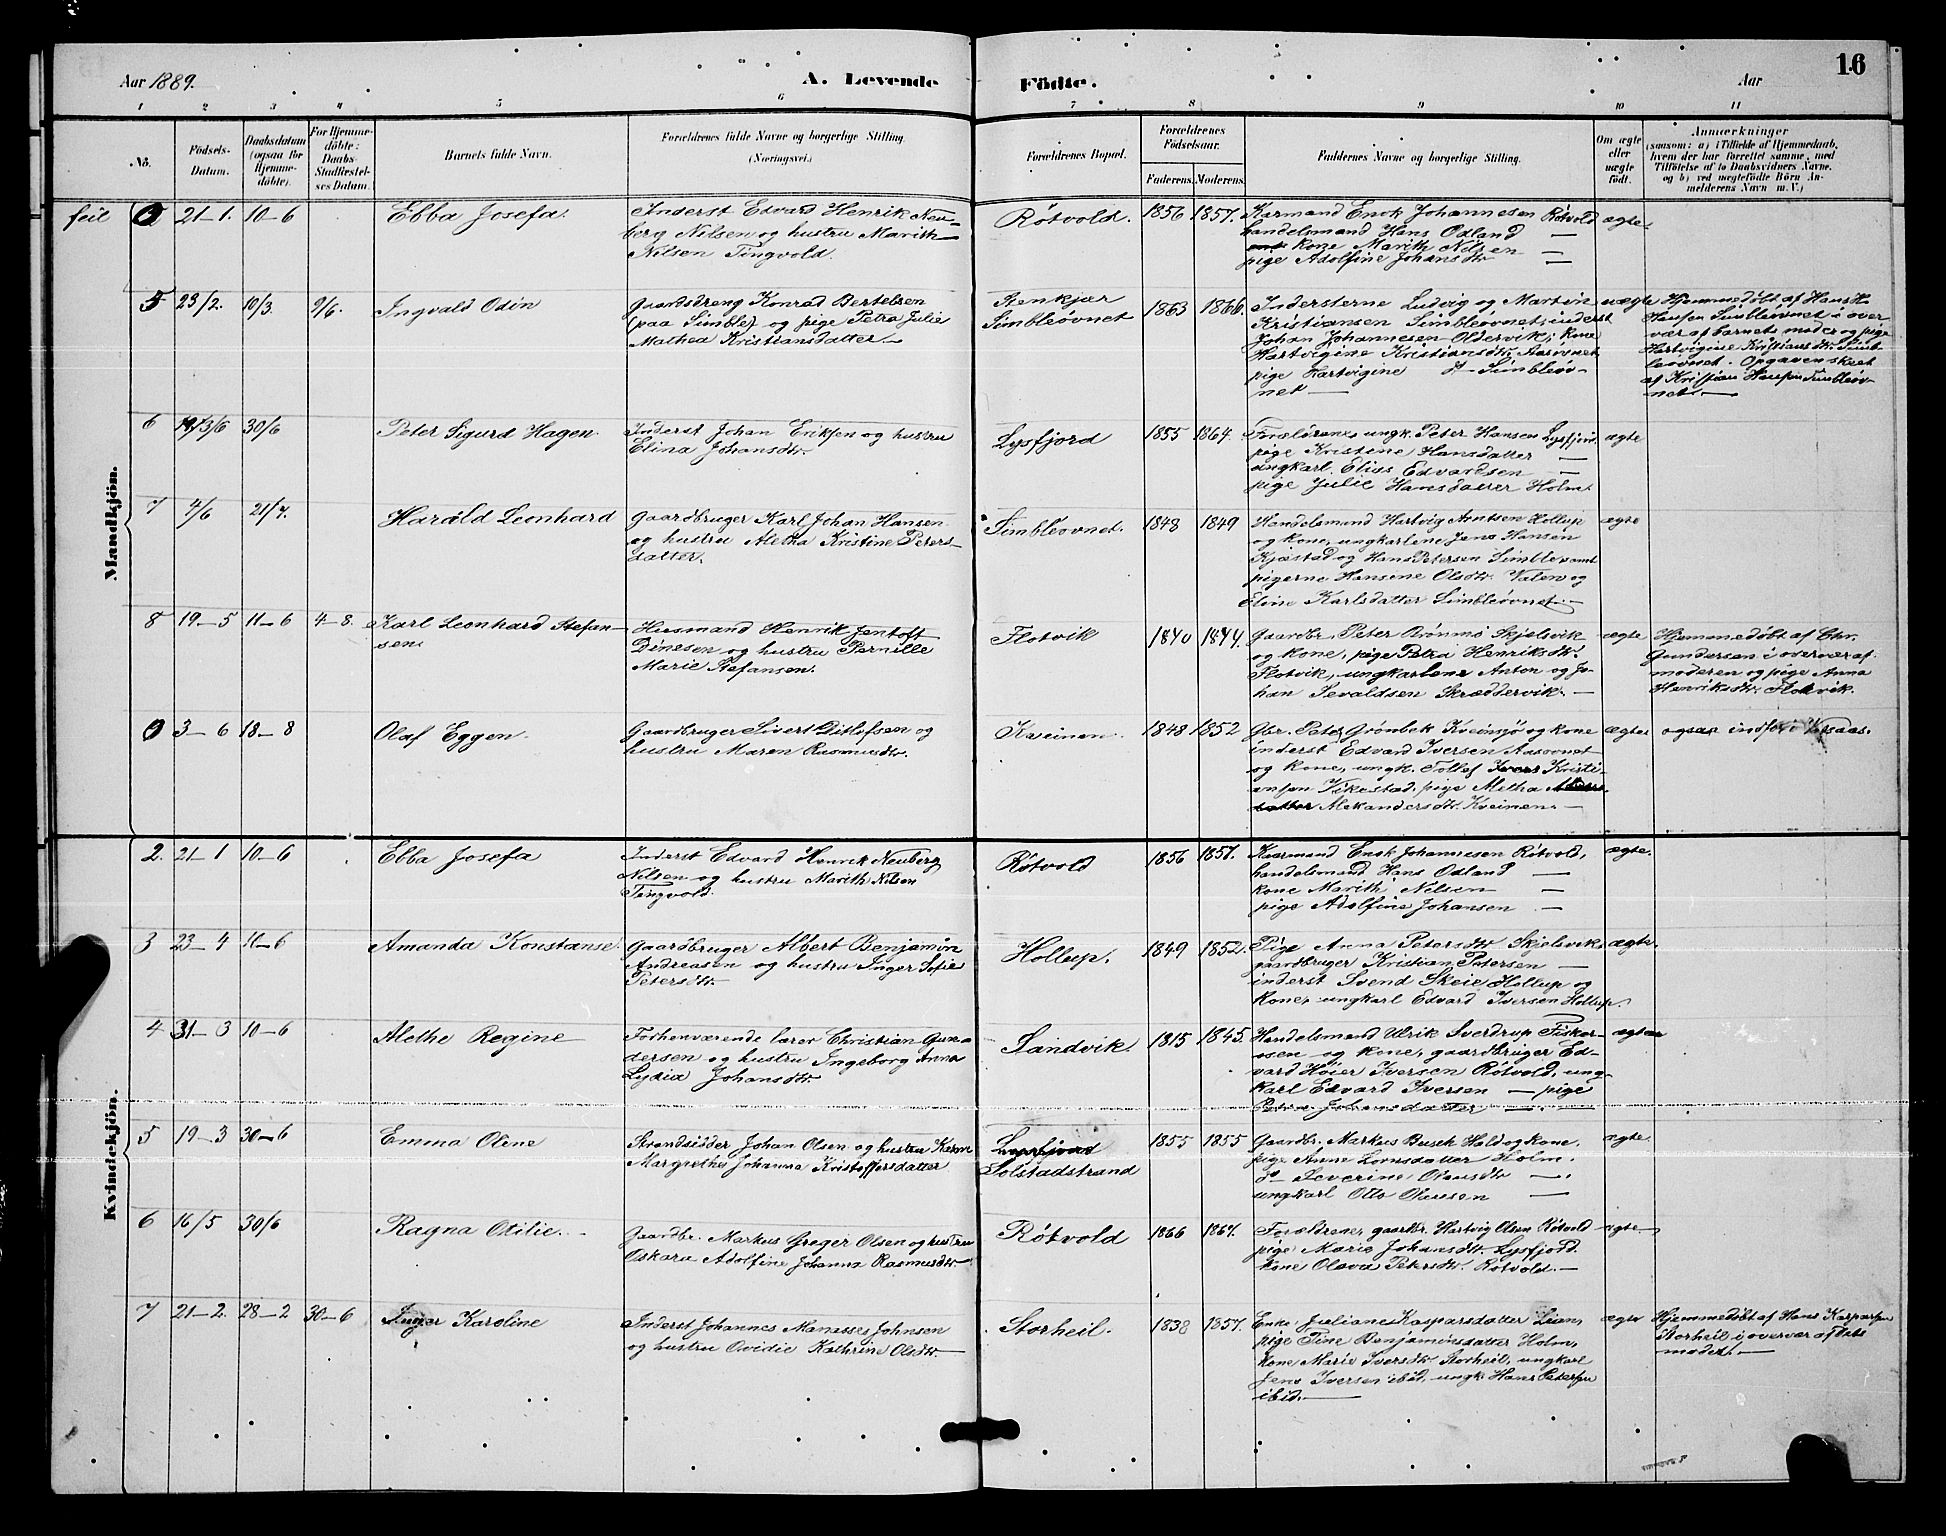 Aar 1889.
A. Levende
Födte.
Aar
16
1 2 3 4 5 6 7 8 9 10 11
No.
Födsels-Datum.
Daabsdatum (ogsaa for Hjemme-döbte).
For Hjemme-döbte: Daabs-Stadfæstel-ses Datum.
Barnets fulde Navn.
Forældrenes fulde Navne og borgerlige Stilling. (Næringsvei.)
Forældrenes Bopæl.
Forældrenes Födselsaar.
Faderens. Moderens.
Faddernes Navne og borgerlige Stilling.
Om ægte eller uægte födt.
Anmærkninger
(saasom: a) i Tilfælde af Hjemmedaab, hvem der har forrettet samme, med Tilföielse af to Daabsvidners Navne, og b) ved uægtefödte Börn An-melderens Navn m. V.)
Mandkjön.
feil
21-1. 10-6 Ebba Josefa.
Inderst Edvard Henrik Neu-
berg Nilsen og hustru Marith
Nilsen Tingvold.
Røtvold. 1856 1857.
Karmand Enok Johannesen Røtvold
handelsmand Hans Odland —
kone Marith Nilsen —
pige Adolfine Johansdtr —
ægte.
5 23/2. 10/3. 9/6. Ingvald Odin
Gaardsdreng Konrad Bertelsen
(paa Simble) og pige Petra Julie
Mathea Kristiansdatter
Renkjær
Simbleøvnet 1863 1866.
Indersterne Ludvig og Martin
Kristiansen Simbleøvnet, inderst
Johan Johannesen Oldervik, kone
Hartvigine Kristiansdtr. Aasøvnet
pige Hartvigine d- Simbleøv-
net —
uægte
Hjemmedøbt af Hans H.
Hansen Simbleøvnet i over-
vær af barnets moder og pige
Hartvigine Kristiansdtr. Simb-
leøvnet. Opgaven skeet
af Kristian Hansen Simbleøv-
net.
6 30/6 Peter Sigurd Hagen
Inderst Johan Eriksen og hustru
Elina Johansdtr.
Lysfjord 1855 1864.
Forældrene, ungk. Peter Hansen Lysfjord.
pige Kristine Hansdatter —
ungkarl. Elias Edvardsen —
pige Julie Hansdatter Holm.
ægte
7 4/6 21/7. Harald Leonhard
Gaardbruger Karl Johan Hansen
og hustru Aletha Kristine Peters-
datter.
Simbleøvnet. 1848 1849
Handelsmand Hartvig Arntsen Hollup
og kone, ungkarlene Jens Hansen
Kjøstad og Hans Petersen Simble samt
pigerne Hansene Olsdtr. Valen og
Eline Karlsdatter Simbleøvnet. —
ægte
8 19-5 11-6 4-8. Karl Leonhard Stefan-
sen
Husmand Henrik Jentoft
Dinesen og hustru Pernille
Marie Stefansen.
Flotvik 1840 1844.
Gaardbr. Peter Brønmo Skjelsvik
og kone, pige Petra Henriksdtr.
Flotvik, ungkarlene Anton og Jo-
han Sevaldsen Skræddervik. —
ægte
Hjemmedøbt af Chr.
Gundersen i overvær af
moderen og pige Anna
Henriksdtr. Flotvik.
3-6 18-8 Olaf Eggen.
Gaardbruger Sivert Ditlefsen og
hustru Maren Rasmusdtr.
Kveinen. 1848 1852
Gbr. Peter Grønbek Kveinsjø og kone
inderst Edvard Iversen Aasøvnet
og kone, ungk. Tollef Kristi-
ansen Vikestad, pige Aletha
Alexandersdtr. Kveinen. —
ægte
ogsaa indført i
Kvindekjön.
2. 21-1 10-6 Ebba Josefa
Inderst Edvard Henrik Neuberg
Nilsen og hustru Marith Nilsen
Tingvold.
Røtvold 1856 1857.
Karmand Enok Johannesen Røtvold,
handelsmand Hans Odland —
kone Marith Nilsen —
pige Adolfine Johansen —
ægte.
3 23-4 11-6 Amanda Konstanse
Gaardbruger Albert Benjamin
Andreasen og hustru Inger Sofie
Petersdtr.
Hollup. 1849 1852.
Pige Anna Petersdtr Skjelsvik,
gaardbruger Kristian Petersen —
inderst Svend Skeie Hollup og
kone, ungkarl Edvard Iversen Hollup.
ægte.
4 31-3 10-6 Alethe Regine
Forhenværende lærer Christian Gun-
dersen og hustru Ingeborg Anna
Lydia Johansdtr.
Sandvik. 1815 1845.
Handelsmand Ulrik Sverdrup Fisker-
osen og kone, gaardbruger Ed-
vard Høier Iversen Røtvold, ung-
karl Edvard Iversen — pige
Petra Johansdatter —
ægte
5 19-3 30-6 Emma Oline
Strandsidder Johan Olsen og hustru Karen
Margrethe Johanna Kristoffersdatter
Lysfjord
Solstadstrand 1855 1855
Gaardbr. Markus Busch Hald og kone,
pige Anne Lornsdatter Holm.
d- Severine Olausdtr —
ungkarl Otto Olausen —
ægte.
6 16/5 30/6 Ragna Otilie.
Gaardbr. Markus Greger Olsen og hustru
Oskara Adolfine Johanna Rasmusdtr.
Røtvold 1866 1867.
Forældrene, gaardbr. Hartvig Olsen Røtvold
pige Marie Johansdtr. Lysfjord.
kone Olava Petersdtr. Røtvold. —
ægte.
7 21-2. 28-2 30-6 Inger Karoline
Inderst Johannes Manasses Johnsen
og hustru Ovidie Kathrine Olsdtr.
Storheil. 1838 1857.
Enke Juliane Kasparsdatter Lian,
pige Tine Benjaminsdatter Holm,
kone Marie Iversdtr. Storheil, ungkarl
Jens Iversen ibid, ungk. Hans Petersen
ibid.
ægte
Hjemmedøbt af Hans Kaspersen
Storheil i overvær af dets
moder. —